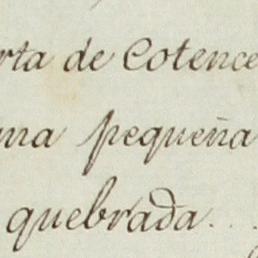 rta de Cotence
ma pequeña
quebrada...